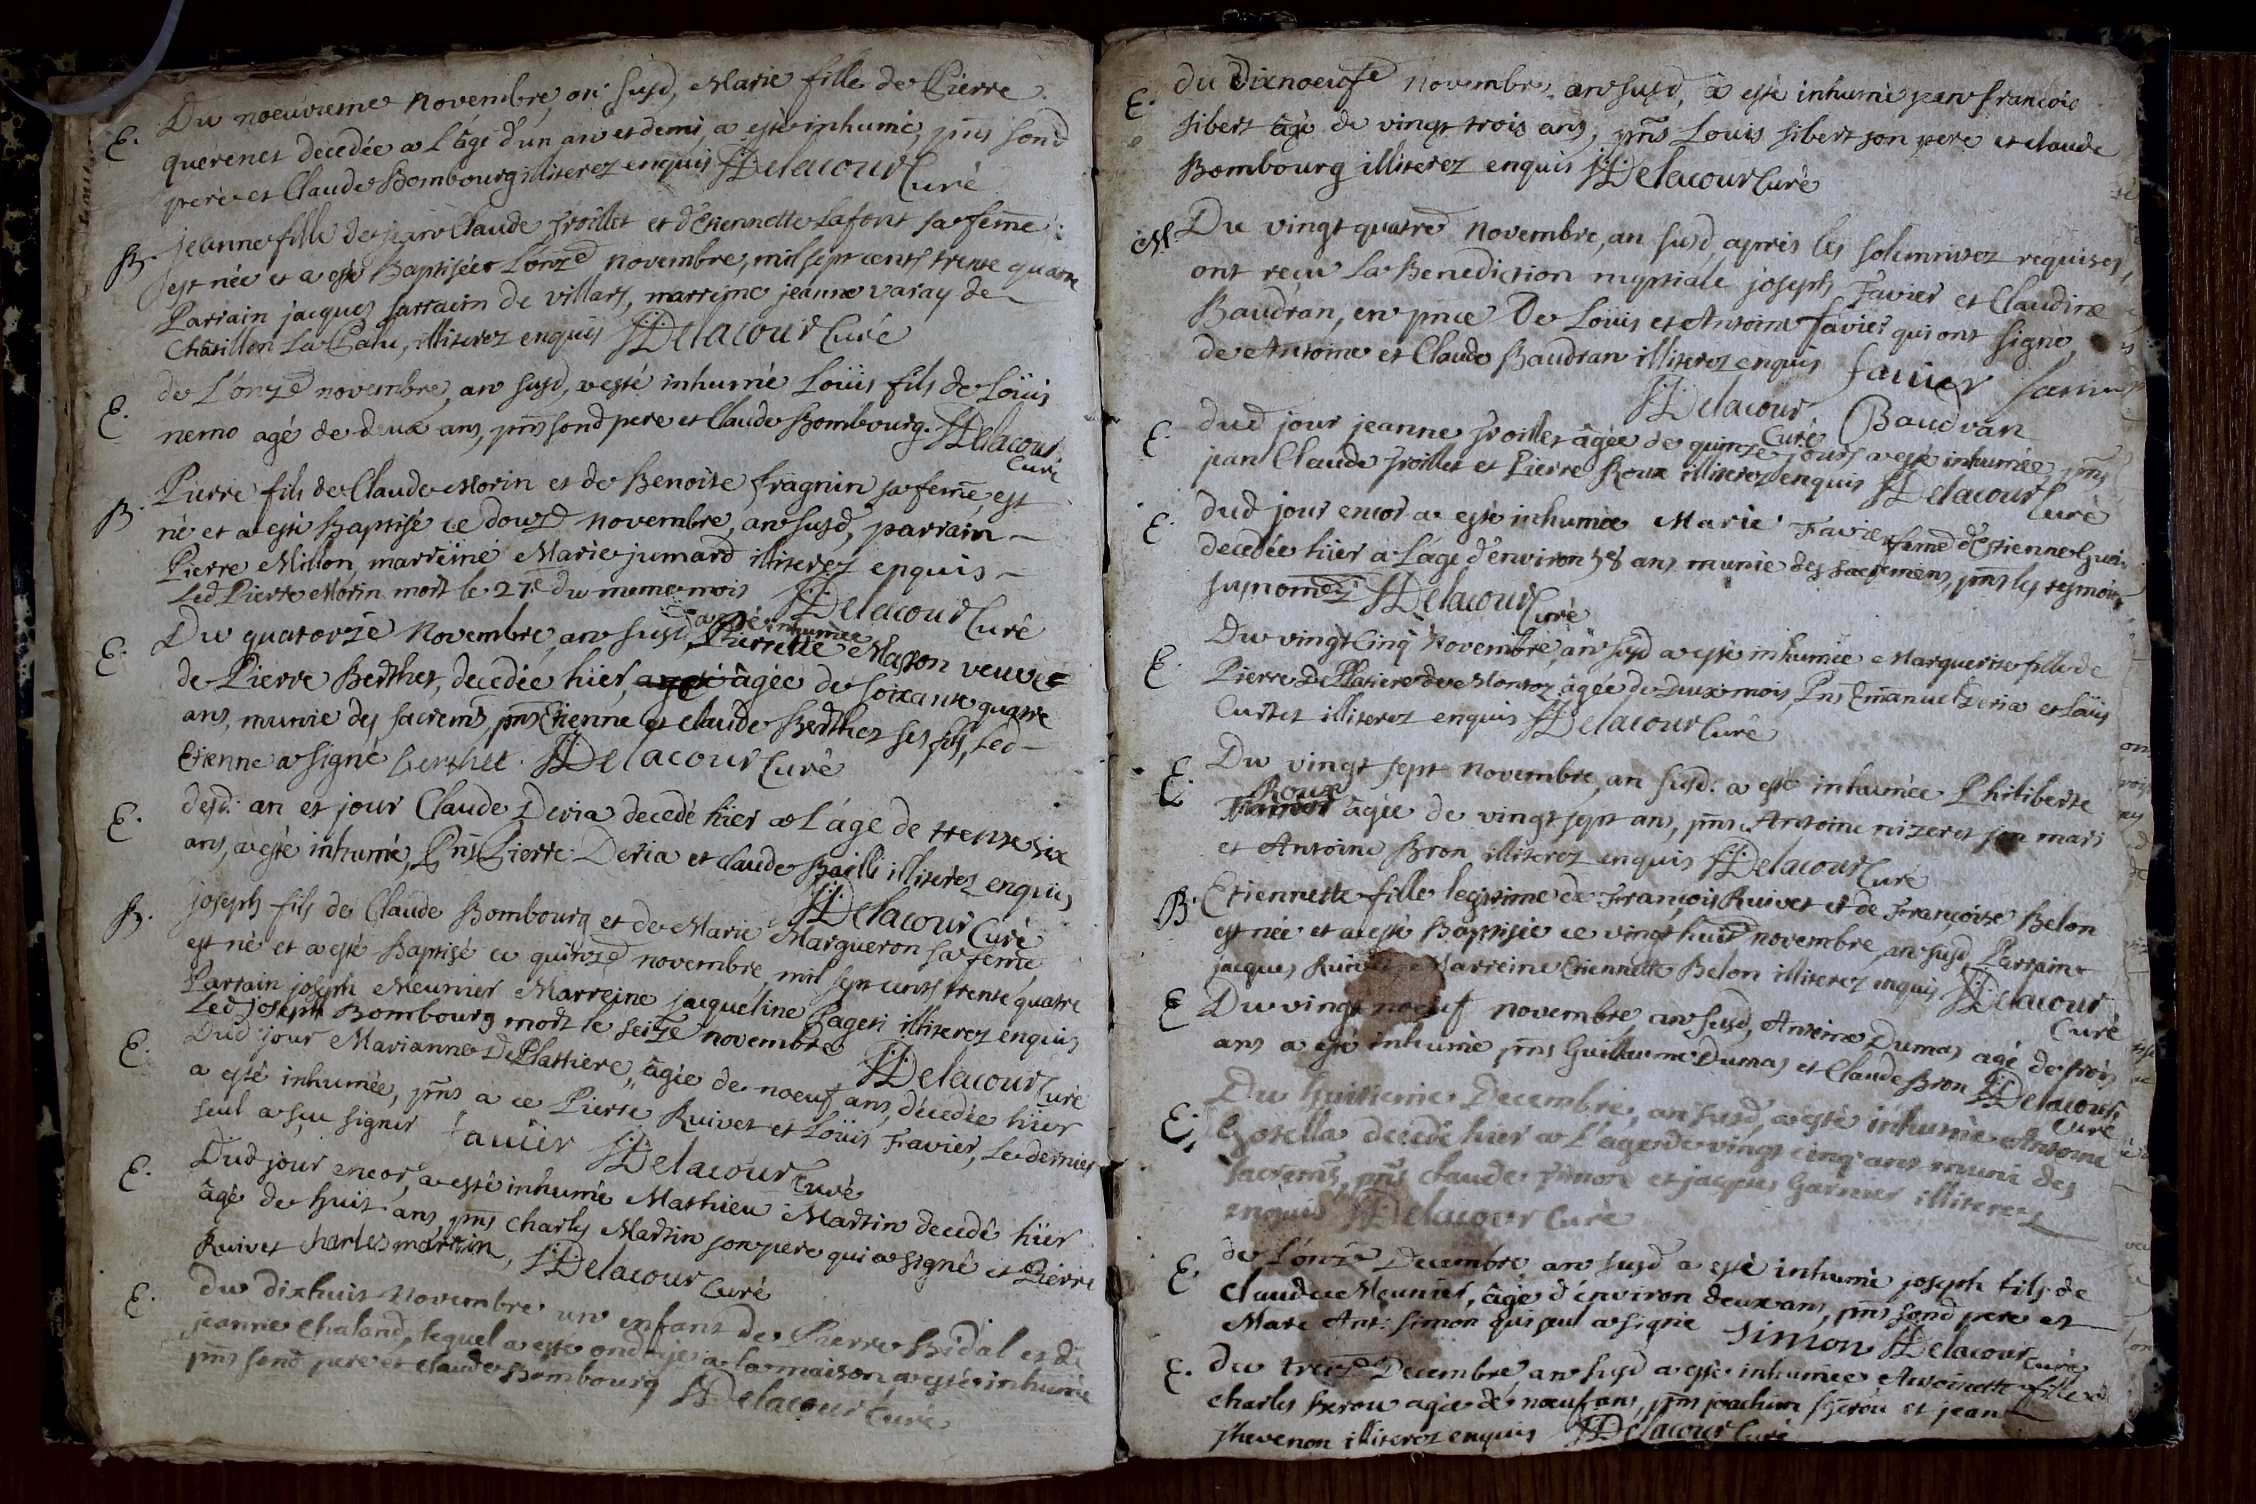 E. Du noeuvieme novembre, an susd, Marie fille de Pierre
querenet decedée a l'âge d'un an et demi, a esté inhumé, pns sond
pere et Claude Bombourg illiterez enquis JJDelacour Curé
B. jeanne fille de jean Claude froillet et d'Etiennette Lafont sa feme
est née et a esté Baptisée l'onze novembre, mil sept cents trente quatre
Parrain jacques sarrasin de villars, marreine jeanne varay de
Châtillon La Palu, illiterez enquis JJDelacour Curé
E. de L'onze novembre, an susd, a esté inhumé Loüis fils de Loüis
nemo agé de deux ans, pns sond pere et Claude Bombourg. JJDelacour
Curé
B. Pierre fils de Claude Morin et de Benoite fragnin sa feme, est
né et a esté Baptisé ce douze novembre, an susd, parrain
Pierre Millon, marreine Marie jumard illiterez enquis
Led Pierre Morin mort le 27e du meme mois JJDelacour Curé
a esté inhumée
E. Du quatorze Novembre, an susd, Pierrette Masson veuve
de Pierre Berthet, decedée hier, âgée de soixante quatre
ans, munie des sacrems, pns Etienne et Claude Berthet ses fils, Led
Etienne a signé berthet. JJDelacour Curé
E. desd. an et jour Claude Deria decedé hier a L'âge de trente six
ans, a esté inhumé, Pns Pierre Deria et Claude Bailli illiterez enquis
JJDelacour Curé
B. joseph fils de Claude Bombourg et de Marie Margueron sa feme
est né et a esté Baptisé ce quinze novembre, mil sept cents trente quatre
Parrain joseph Meunier Marreine jacqueline Pageri illiterez enquis
Led joseph Bombourg mort le seize novembre JJDelacour Curé
E. Dud jour Marianne DePlattiere, âgée de noeuf ans, décedée hier
a esté inhumée, pns a ce Pierre Ruivet et Loüis Favier, Le dernier
seul a sçu signer favier JJDelacour Curé
E. Dud jour encor, a esté inhumé Mathieu Martin decedé hier
âgé de huit ans, pns Charles Martin son pere qui a signé et Pierre
Ruivet charles martin, JJDelacour Curé
E. du dixhuit Novembre un enfant de Pierre Bidal et de
jeanne Chaland, lequel a esté ondoyé a la maison, a esté inhumé
pns sond pere et Claude Bombourg JJDelacour Curé
E. du dixnoeufe Novembre an susd, a esté inhumé jean françois
sibert âgé de vingt trois ans, pns Louis sibert son pere et claude
Bombourg illiterez enquis JJDelacour Curé
M. Du vingt quatre Novembre, an susd, apres les solemnitez requises
ont reçu La Benediction nuptiale joseph Favier et Claudine
Baudran, en pnce De Loüis et Antoine favier qui ont signé,
de Antoine et Claude Baudran illiterez enquis favier favier
JJDelacour Curé Baudran
E. dud jour jeanne froillet âgée de quinze jours a esté inhumée, pns
jean Claude froillet et Pierre Roux illiterez enquis JJDelacour Curé
E. dud jour encor a esté inhumée Marie Favier feme d'Etienne
decedée hier a L'âge d'environ 58 ans munie des sacremens, pns les tesmoins
susnomez JJDelacour Curé
E. Du vingt cinq Novembre, an susd a esté inhumée Marguerite fille de
Pierre DePlatiere de Montoz âgée de Deux mois, Pns Emanuel Deria et Loüis
Curtet illiterez enquis JJDelacour Curé
E. Du vingt sept novembre, an susd. a esté inhumée Philiberte
Roux
âgée de vingt sept ans, pns Antoine nizeret son mari
et Antoine Bron illiterez enquis JJDelacour Curé
B. Etiennette fille legitime de François Ruivet et de Françoise Belon
est née et a esté Baptisée ce vingt huit novembre, an susd Parrain
jacques Ruivet, Marreine Etiennette Belon illiterez enquis JJDelacour
Curé
E Du vingt noeuf novembre an susd, Antoine Dumas agé de trois
ans a esté inhumé pns Guillaume Dumas et Claude Bron JJDelacour
Curé
E. Du huitieme Decembre, an susd, a esté inhumé Antoine
Gotella decedé hier a L'age de vingt cinq ans muni des
sacrems, pns claude simon et jacques Garnier illiterez
enquis JJDelacour Curé
E. de L'onze Decembre an susd a esté inhumé joseph fils de
Claude Meunier, âgé d'environ deux ans, pns sond pere et
Marc Ant: simon qui seul a signé simon JJDelacour Curé
E. du treize Decembre, an susd a esté inhumée Antoinette fille de
charles agée de noeuf ans, pns joachim et jean
thevenon illiterez enquis JJDelacour Curé